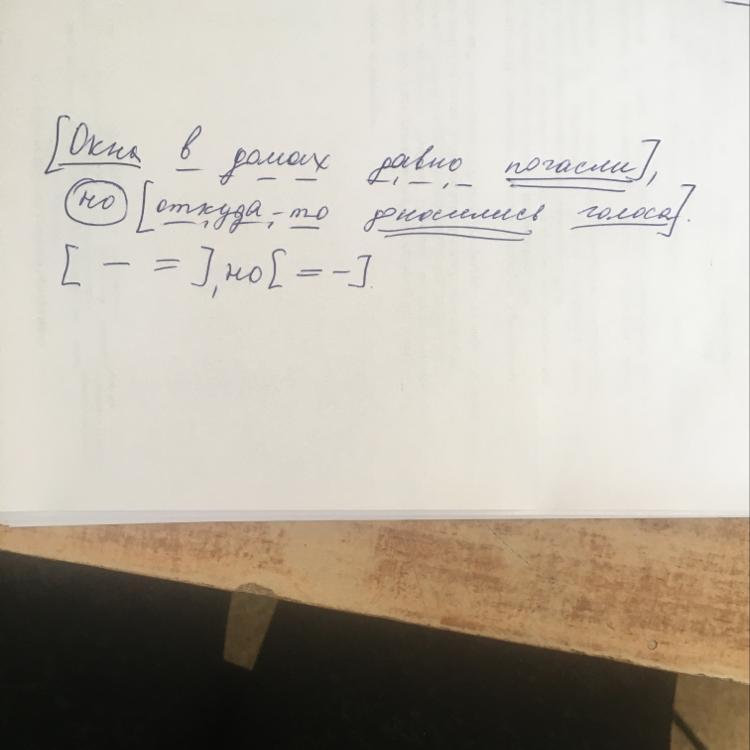 [Окна в домах давно погасли],
но [откуда-то доносились голоса].
[ – = ], но [ = – ].